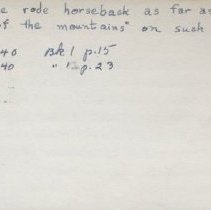 e rode horseback as far as
of the mountains" on such
40 Bk 1 p.15
40 " 1 p.23